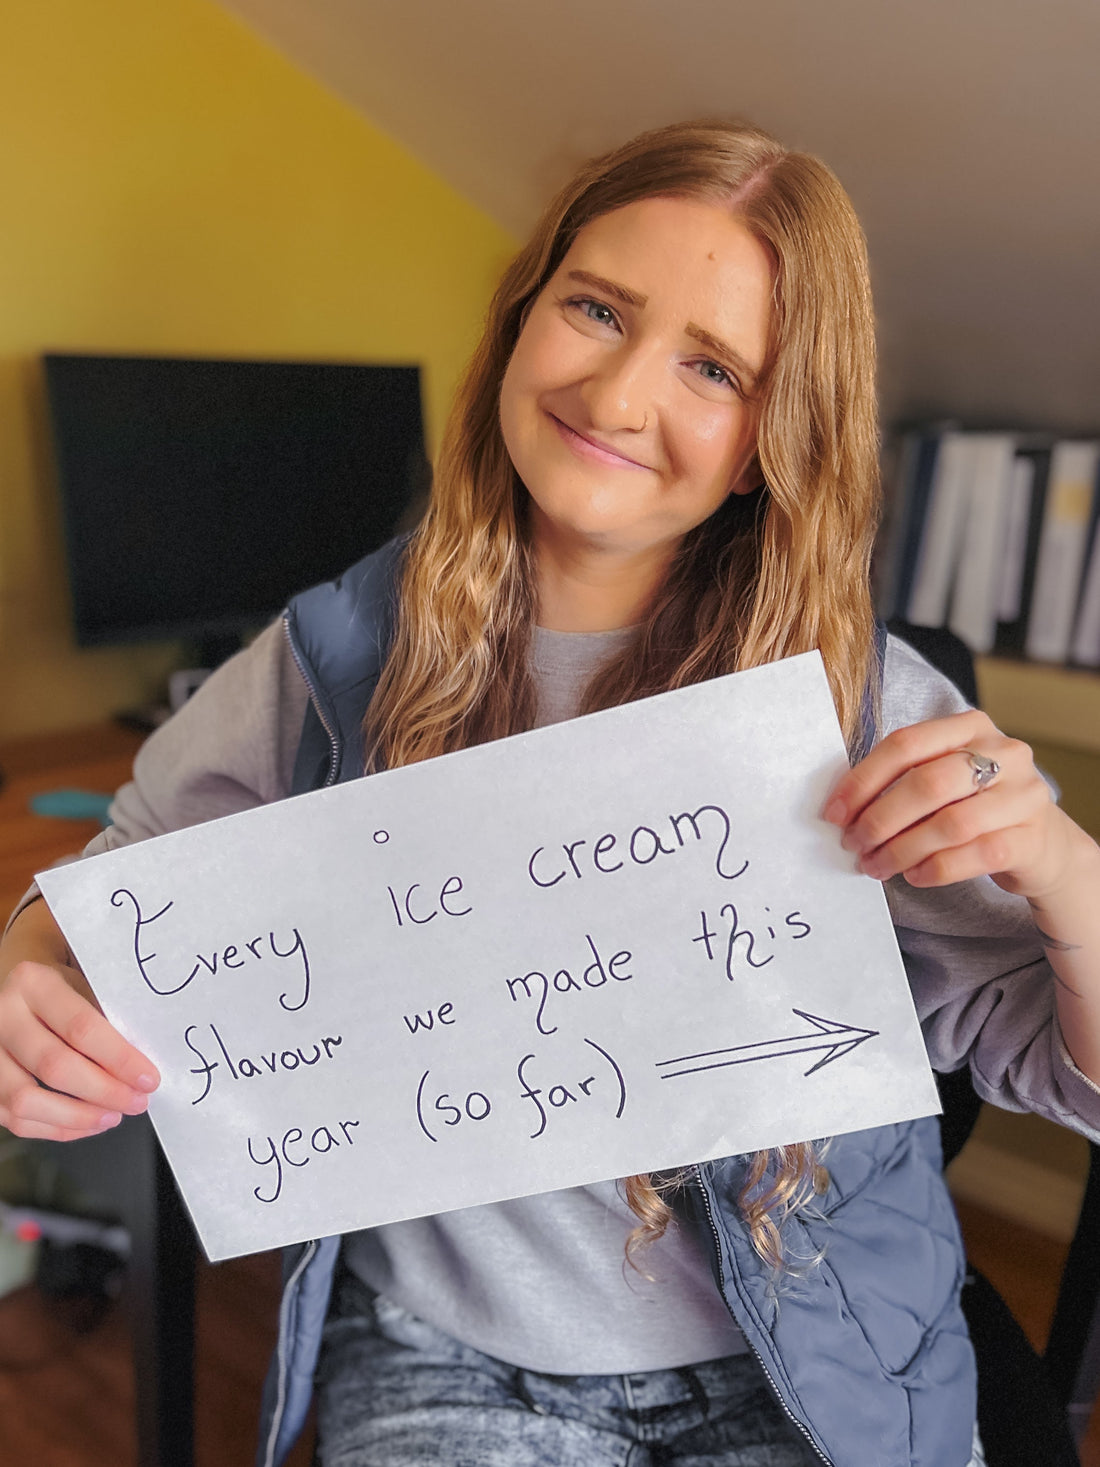 Every ice cream
flavour we made this
year (so far)